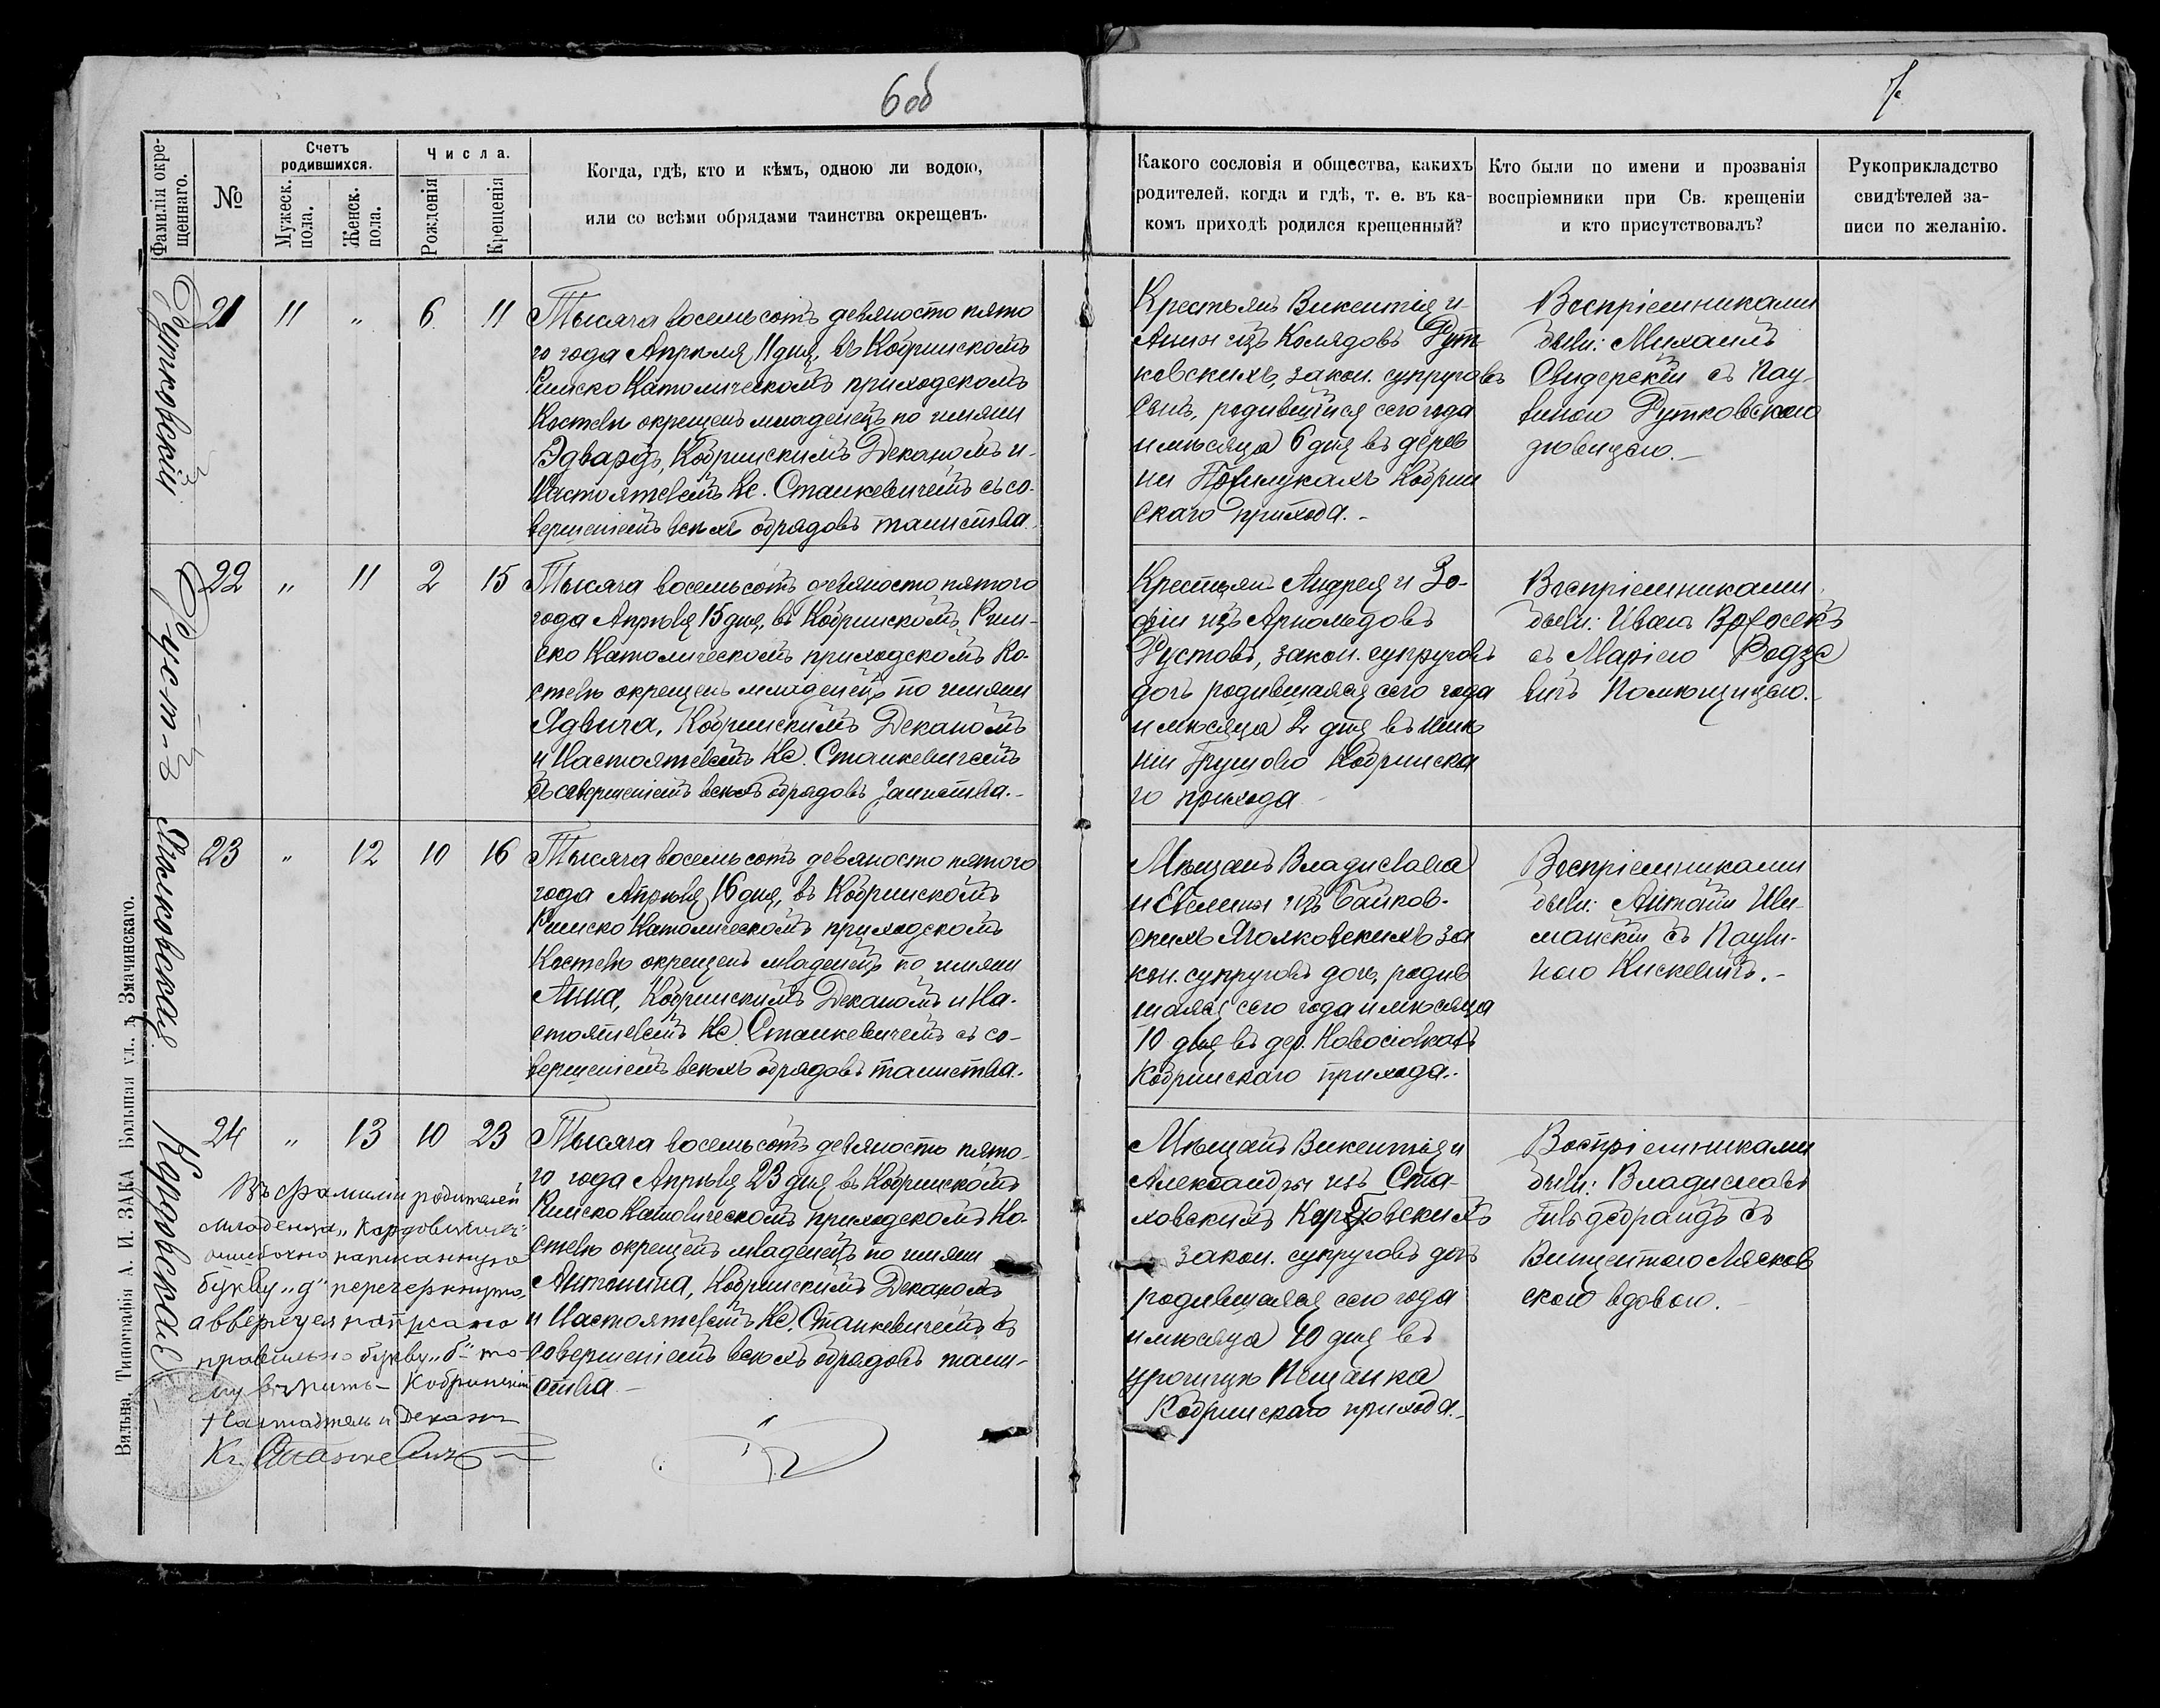 6 об
7.
Фамилія окре-
щеннаго.
№
Счетъ
родившихся.
Мужеск.
пола.
Женск.
пола.
Числа.
Рожденія
Крещенія
Когда, гдѣ, кто и кѣмъ, одною ли водою,
или со всѣми обрядами таинства окрещенъ.
Какого сословія и общества, какихъ
родителей, когда и гдѣ, т. е. въ ка-
комъ приходѣ родился крещенный?
Кто были по имени и прозванія
воспріемники при Св. крещеніи
и кто присутствовалъ?
Рукоприкладство
свидѣтелей за-
писи по желанію.
Рутковскій
21 11 „ 6 11
Тысяча восемьсотъ девяносто пято
го года Апрѣля 11 дня, въ Кобринскомъ
Римско Католическомъ приходскомъ
Костелѣ окрещенъ младенецъ по имени
Эдвардъ, Кобринскимъ Деканомъ и
Настоятелемъ Кс. Станкевичемъ съ со-
вершеніемъ всѣхъ обрядовъ таинства.
Крестьянъ Викентія и
Анны изъ Колядовъ Рут-
ковскихъ, закон. супруговъ
сынъ, родившійся сего года
и мѣсяца 6 дня въ дерев
ни Кобрин
скаго прихода.-
Воспріемниками
были: Михаилъ
Свидерскій съ Пау-
линою Рутковскою
дѣвицею.-
Рустъ
22 „ 11 2 15
Тысяча восемьсотъ девяносто пятого
года Апрѣля 15 дня, въ Кобринскомъ Рим-
ско Католическомъ приходскомъ Ко-
стелѣ окрещенъ младенецъ по имени
Ядвига, Кобринскимъ Деканомъ
и Настоятелемъ Кс. Станкевичемъ
съ совершеніемъ всѣхъ обрядовъ таинства.-
Крестьян Андрея и Зо-
фіи изъ Арнольдовъ
Рустовъ, закон. супруговъ
дочь родившаяся сего года
и мѣсяца 2 дня въ имѣ
ніи Грушово Кобринска
го прихода
Воспріемниками
были: Иванъ
съ Маріею Родзе
вичъ Помѣщицею.-
Ячолковская
23 „ 12 10 16
Тысяча восемьсотъ девяносто пятого
года Апрѣля 16 дня, въ Кобринскомъ
Римско Католическомъ приходскомъ
Костелѣ окрещенъ младенецъ по имени
Анна, Кобринскимъ Деканомъ и На-
стоятелемъ Кс. Станкевичемъ съ со-
вершеніемъ всѣхъ обрядовъ таинства.
Мѣщанъ Владислава
и Евелины изъ Байков-
скихъ Ячолковскихъ за
кон. супруговъ дочь, родив
шаяся сего года и мѣсяца
10 дня въ дер. Новосіолкахъ
Кобринскаго прихода.
Воспріемниками
были: Антонъ
съ Паули-
ною Кискевичъ.-
Корбовская
24 „ 13 10 23
Тысяча восемьсотъ девяносто пято-
го года Апрѣля 23 дня въ Кобринскомъ
Римско Католическомъ приходскомъ Ко-
стелѣ окрещенъ младенецъ по имени
Антонина, Кобринскимъ Деканомъ
и Настоятелемъ Кс. Станкевичемъ съ
совершеніемъ всѣхъ обрядовъ таин-
ства.-
Въ фамиліи родителей
младенца „Кордовскихъ"
ошибочно написанную
букву „д" перечеркнуто,
а вверху ея написано
правильно букву „б" то-
му вѣрить - Кобринскій
Настоятель и Деканъ
Кс. Станкевичъ
Мѣщанъ Викентія и
Александры изъ Ста-
ховскихъ Корбовскихъ
закон. супруговъ дочь
родившаяся сего года
и мѣсяца 10 дня въ
урочищѣ Пещанка
Кобринскаго прихода.-
Воспріемниками
были: Владиславъ
Гильдебрандъ съ
Вицентою Лясков
скою вдовою.-
Вильна, Типографія А. И. ЗАКА Большая ул., д. Змачинскаго.